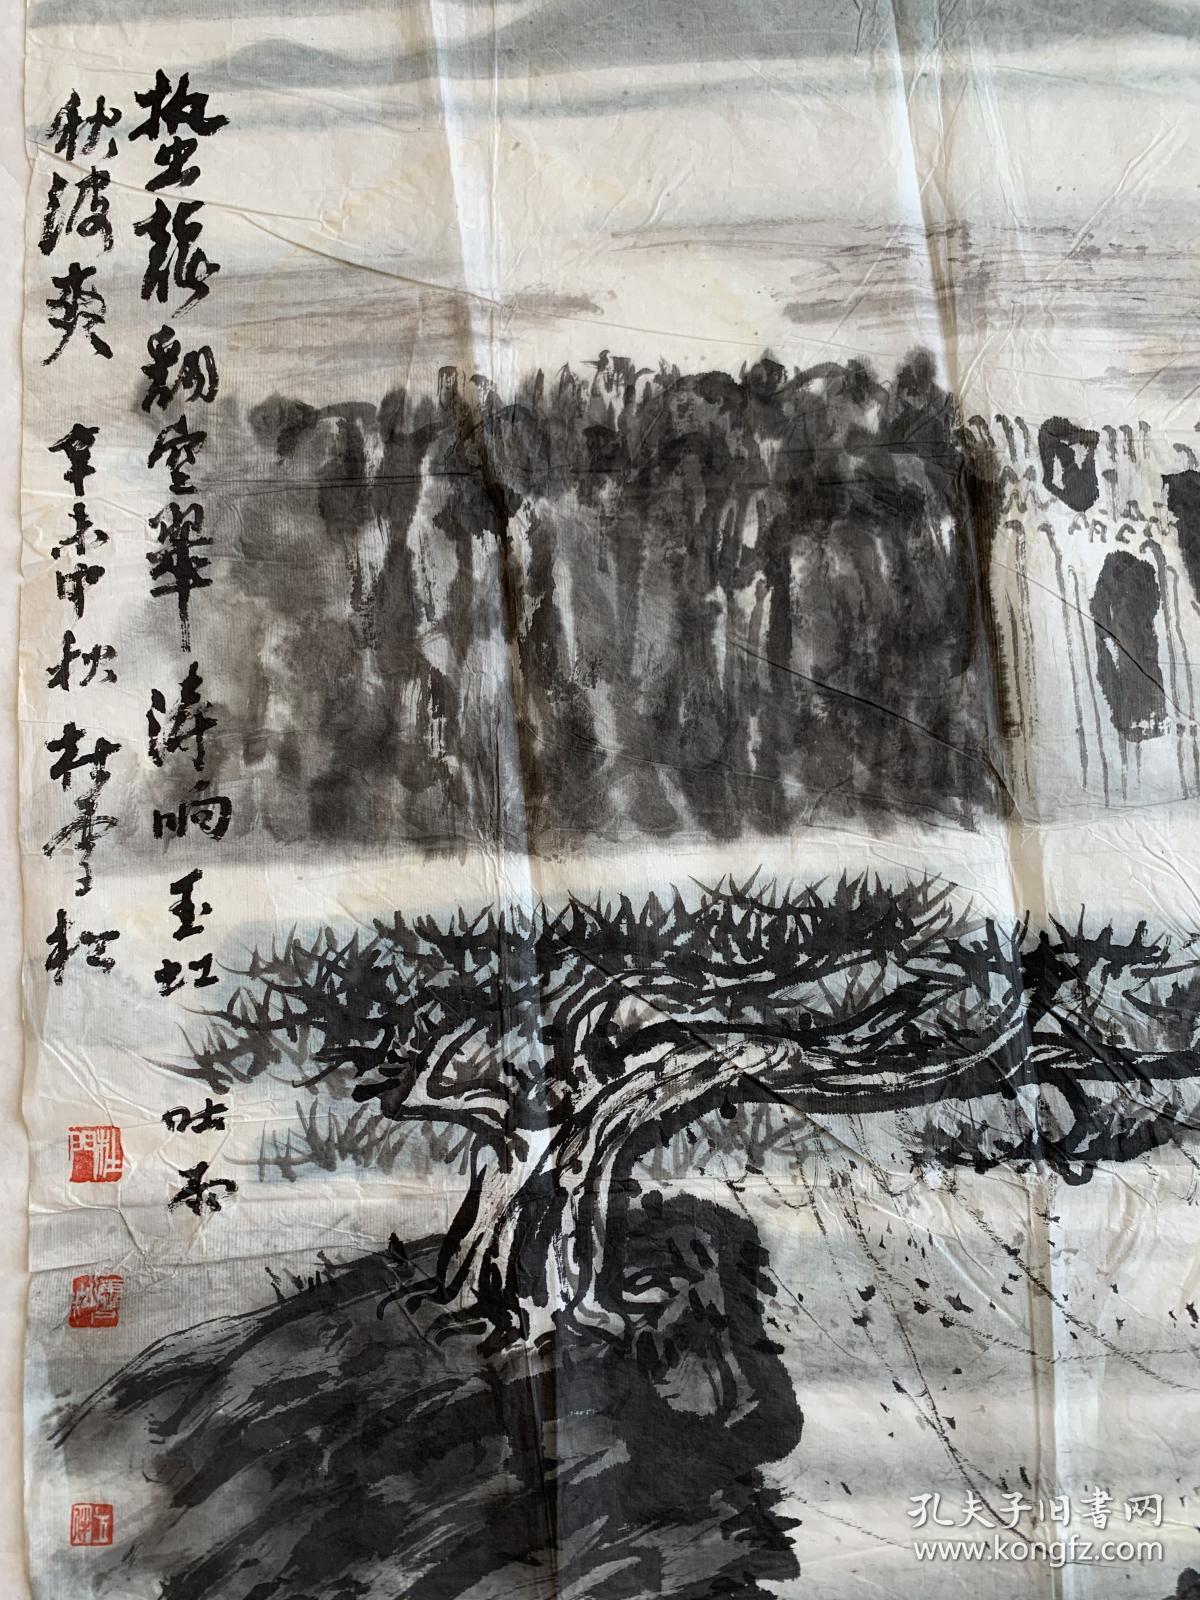 蛰龙翻空翠涛响玉虹吐雨
秋波爽 辛未中秋 杜雪松
杜
雪松
孔夫子旧书网
www.kongfz.com